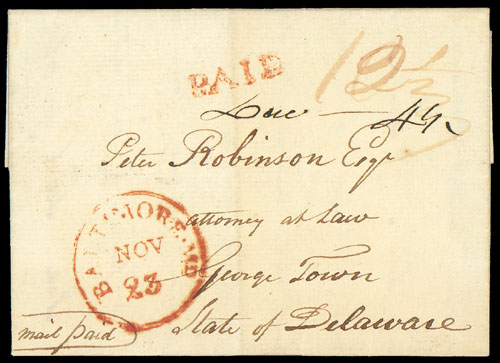 PAID
12½
Due — 4½
Peter Robinson Esqr
attorney at Law
George Town
State of Delaware
BALTIMORE MD
NOV
23
mail paid